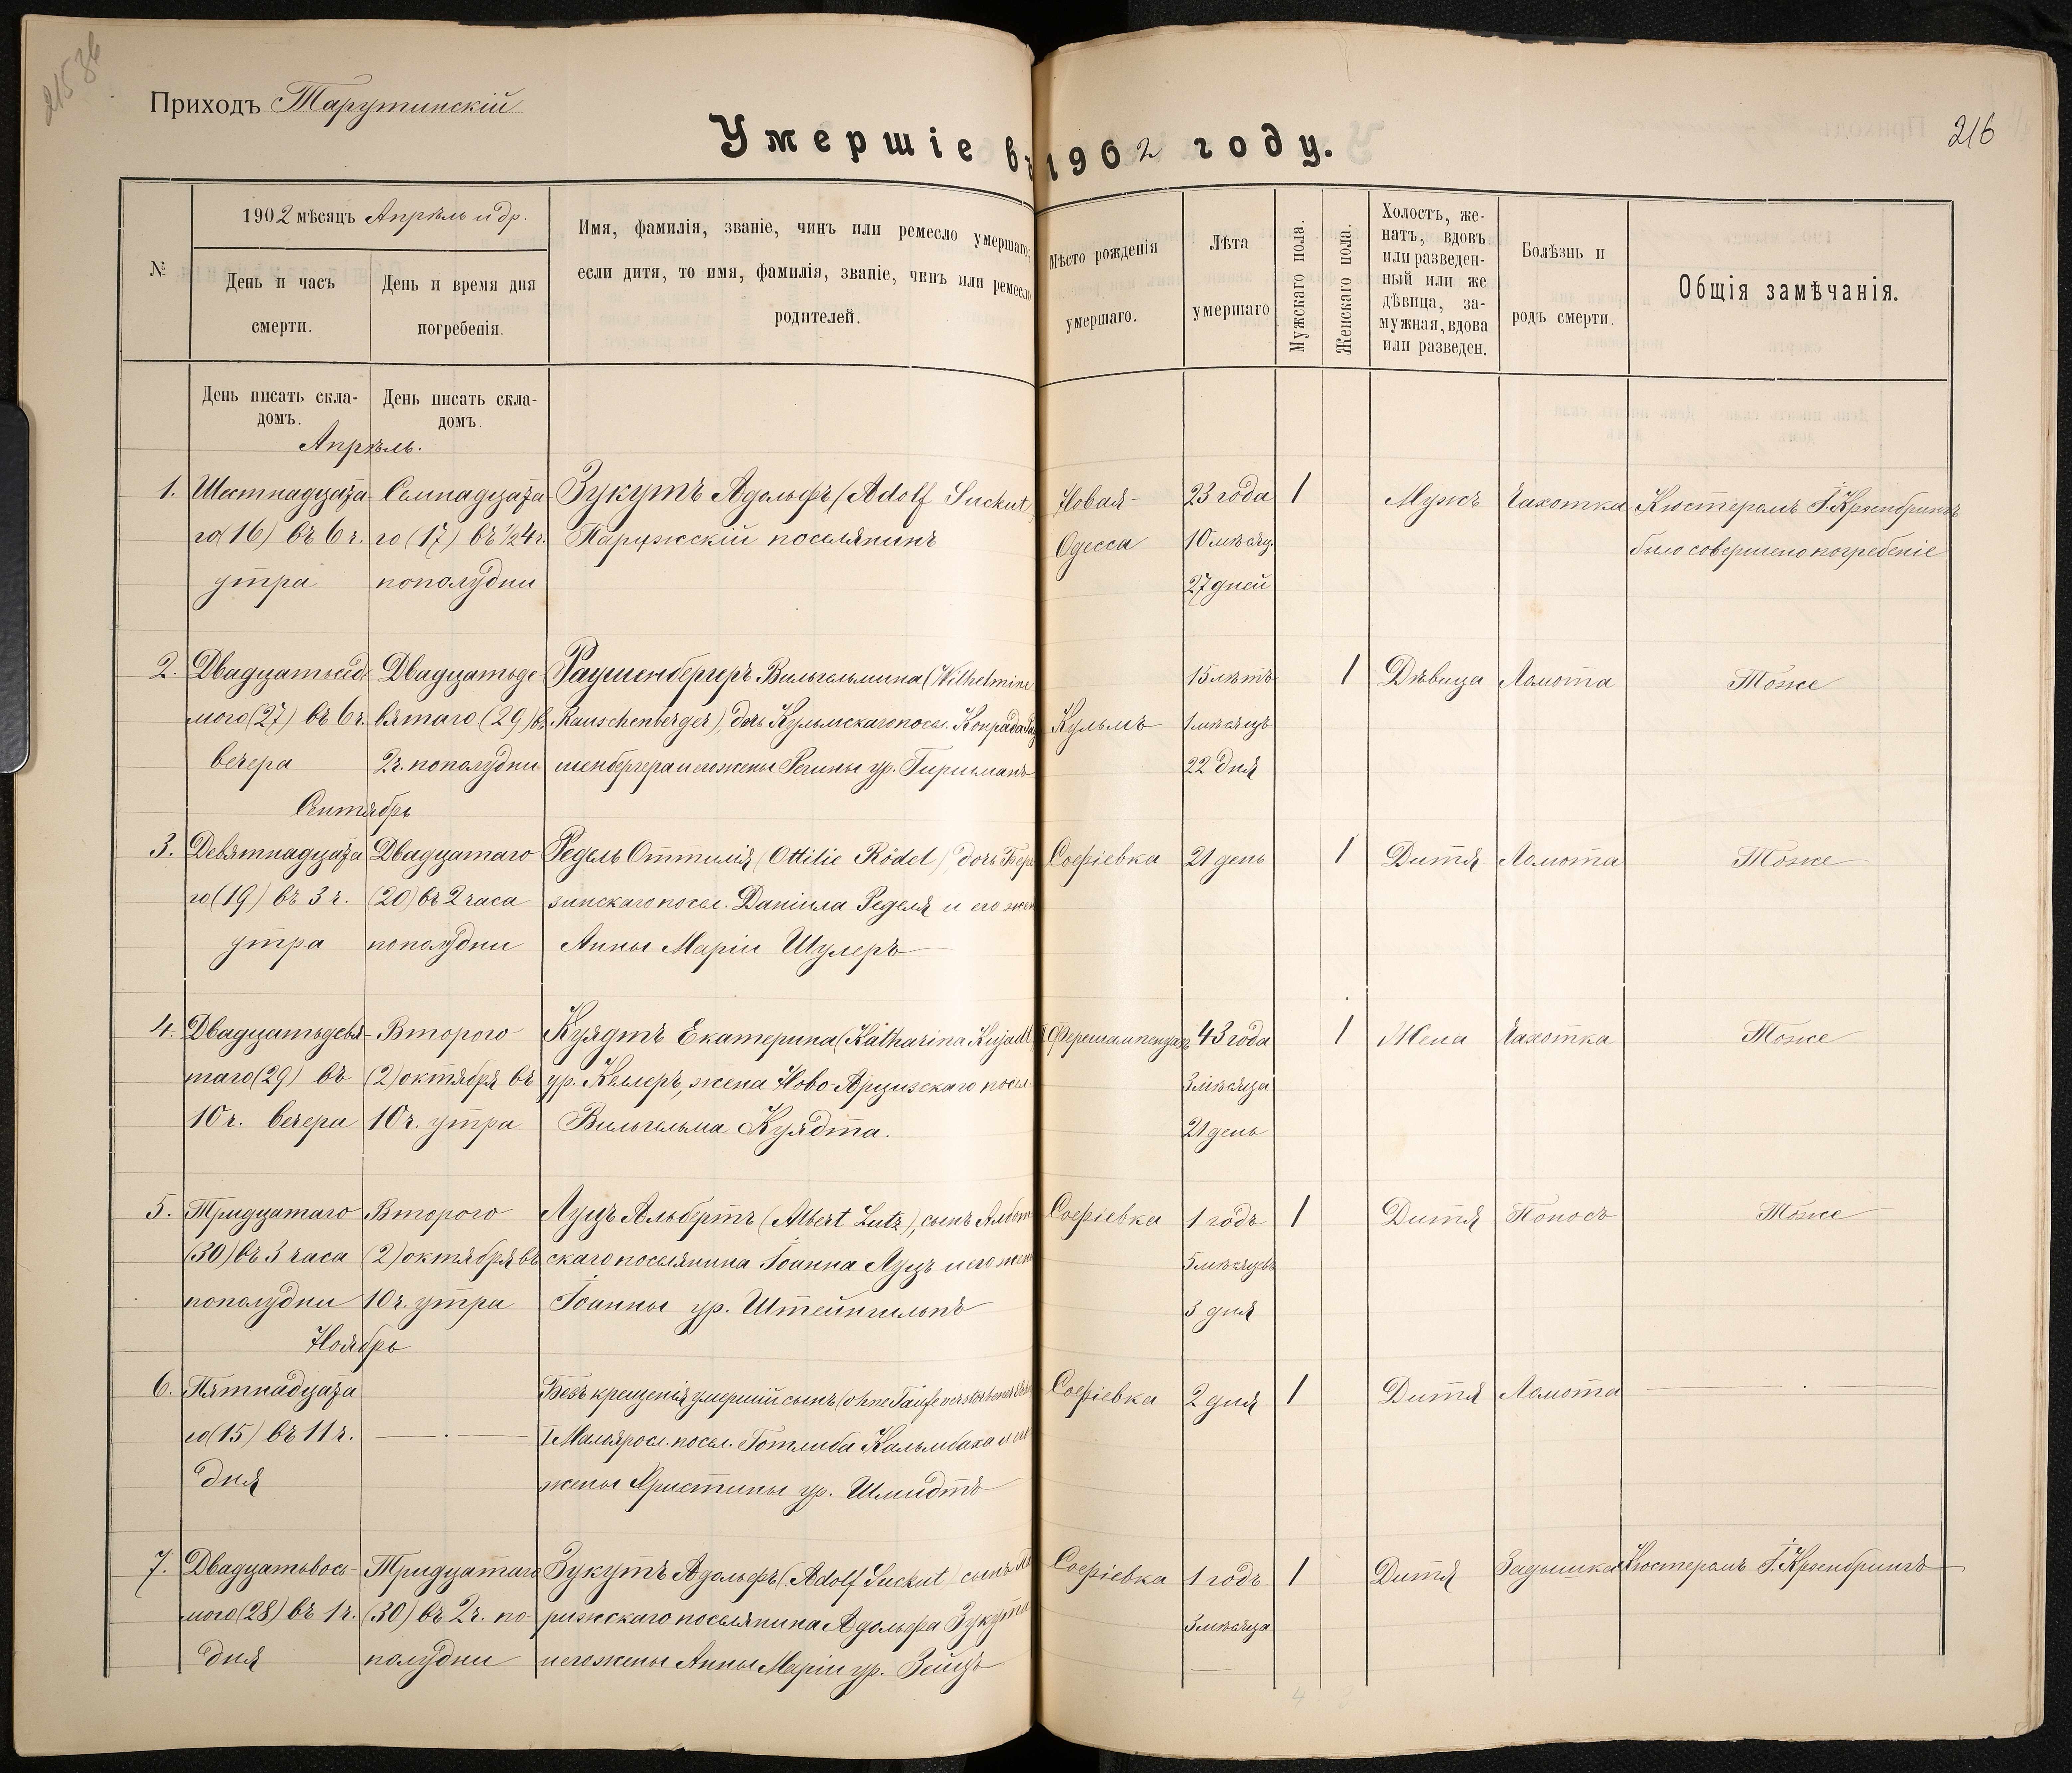 Приходъ Тарутинскій
216
Умершіе въ 1902 году.
№
1902 мѣсяцъ Апрѣль и др.
День и часъ
смерти.
День и время дня
погребенія.
Имя, фамилія, званіе, чинъ или ремесло умершаго;
если дитя, то имя, фамилія, званіе, чинъ или ремесло
родителей.
Мѣсто рожденія
умершаго.
Лѣта
умершаго
Мужскаго пола.
Женскаго пола.
Холостъ, же-
натъ, вдовъ
или разведен-
ный или же
дѣвица, за-
мужная, вдова
или разведен.
Болѣзнь и
родъ смерти.
Общія замѣчанія.
День писать скла-
домъ.
День писать скла-
домъ.
Апрѣль.
1.
Шестнадцата-
го (16) въ 6 ч.
утра
Семнадцата
го (17) въ 1/2 4 ч.
пополудни
Зукутъ Адольфъ (Adolf Suckut)
Парижскій поселянинъ
Новая-
Одесса
23 года
10 мѣсяц.
27 дней
1
Мужъ
Чахотка
Кюстеромъ І. Крженбринкъ
было совершено погребеніе
2.
Двадцатьседь-
мого (27) въ 6 ч.
вечера
Двадцатьде-
вятаго (29) въ
2 ч. пополудни
Раушенбергеръ Вильгельмина (Wilhelmine
Rauschenberger), дочь Кульмскаго посел. Конрада Рау
шенбергера и его жены Регины ур. Гиршманъ
Кульмъ
15 лѣтъ
1 мѣсяцъ
22 дня
1
Дѣвица
Ломота
Тоже
Сентябрь
3.
Девятнадцата
го (19) въ 3 ч.
утра
Двадцатаго
(20) въ 2 часа
пополудни
Редель Оттилія (Ottilie Rödel) дочь Бере
зинскаго посел. Даніила Ределя и его жен
Анны Маріи Шулеръ
Софіевка
21 день
1
Дитя
Ломота
Тоже
4.
Двадцатьдевя-
таго (29) въ
10 ч. вечера
Второго
(2) октября въ
10 ч. утра
Куядтъ Екатерина (Katharina Kujadt
ур. Келлеръ, жена Ново Арцизскаго посел
Вильгельма Куядта.
43 года
3 мѣсяца
21 день
1
Жена
Чахотка
Тоже
5.
Тридцатаго
(30) въ 3 часа
пополудни
Второго
(2) октября въ
10 ч. утра
Луцъ Альбертъ (Albert Lutz), сынъ Альбот
скаго поселянина Іоанна Луцъ и его жен
Іоанны ур. Штейнгильпъ
Софіевка
1 годъ
5 мѣсяцевъ
3 дня
1
Дитя
Поносъ
Тоже
Ноябрь
6.
Пятнадцата
го (15) въ 11 ч.
дня
Безъ крещенія умершій сынъ (ohne Taufe verstorbener
I Малояросл. посел. Готлиба Кальмбаха и его
жены Христины ур. Шмидтъ
Софіевка
2 дня
1
Дитя
Ломота
7.
Двадцатьвось-
мого (28) въ 1 ч.
дня
Тридцатаго
(30) въ 2 ч. по-
полудни
Зукутъ Адольфъ (Adolf Suckut) сынъ Па
рижскаго поселянина Адольфа Зукута
и его жены Анны Маріи ур. Зейцъ
Софіевка
1 годъ
3 мѣсяца
1
Дитя
Задышка
Кюстеромъ І. Крженбринкъ